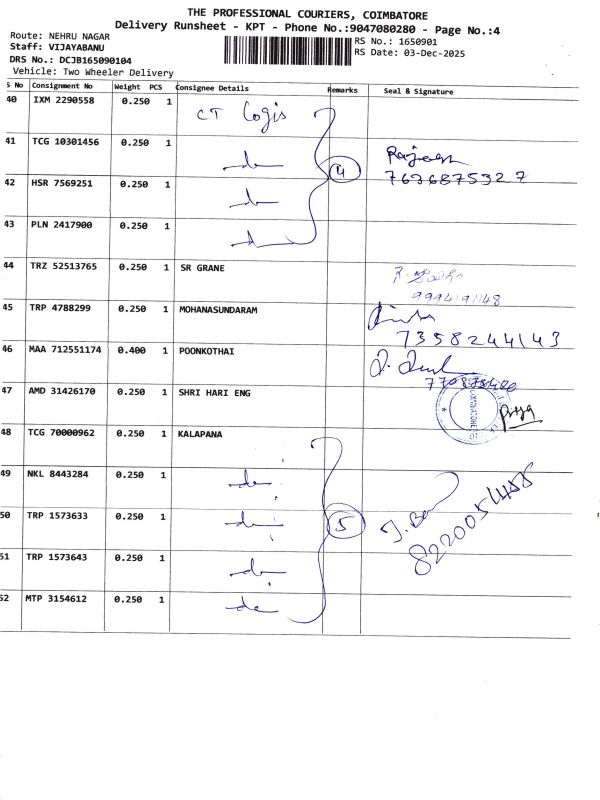 THE PROFESSIONAL COURIERS, COIMBATORE
Delivery Runsheet - KPT - Phone No.:9047080280 - Page No.:4
Route: NEHRU NAGAR
RS No.: 1650901
Staff: VIJAYABANU
RS Date: 03-Dec-2025
DRS No.: DCJB165090104
Vehicle: Two Wheeler Delivery
S No Consignment No Weight PCS Consignee Details Remarks Seal & Signature
40 IXM 2290558 0.250 1 CT Logis
41 TCG 10301456 0.250 1 do
4
Rajesh
7636875327
42 HSR 7569251 0.250 1 do
43 PLN 2417900 0.250 1 do
44 TRZ 52513765 0.250 1 SR GRANE
9994191148
45 TRP 4788299 0.250 1 MOHANASUNDARAM
7358244143
46 MAA 712551174 0.400 1 POONKOTHAI
47 AMD 31426170 0.250 1 SHRI HARI ENG
Priya
48 TCG 70000962 0.250 1 KALAPANA
49 NKL 8443284 0.250 1 do
50 TRP 1573633 0.250 1 do
5
51 TRP 1573643 0.250 1 do
52 MTP 3154612 0.250 1 do